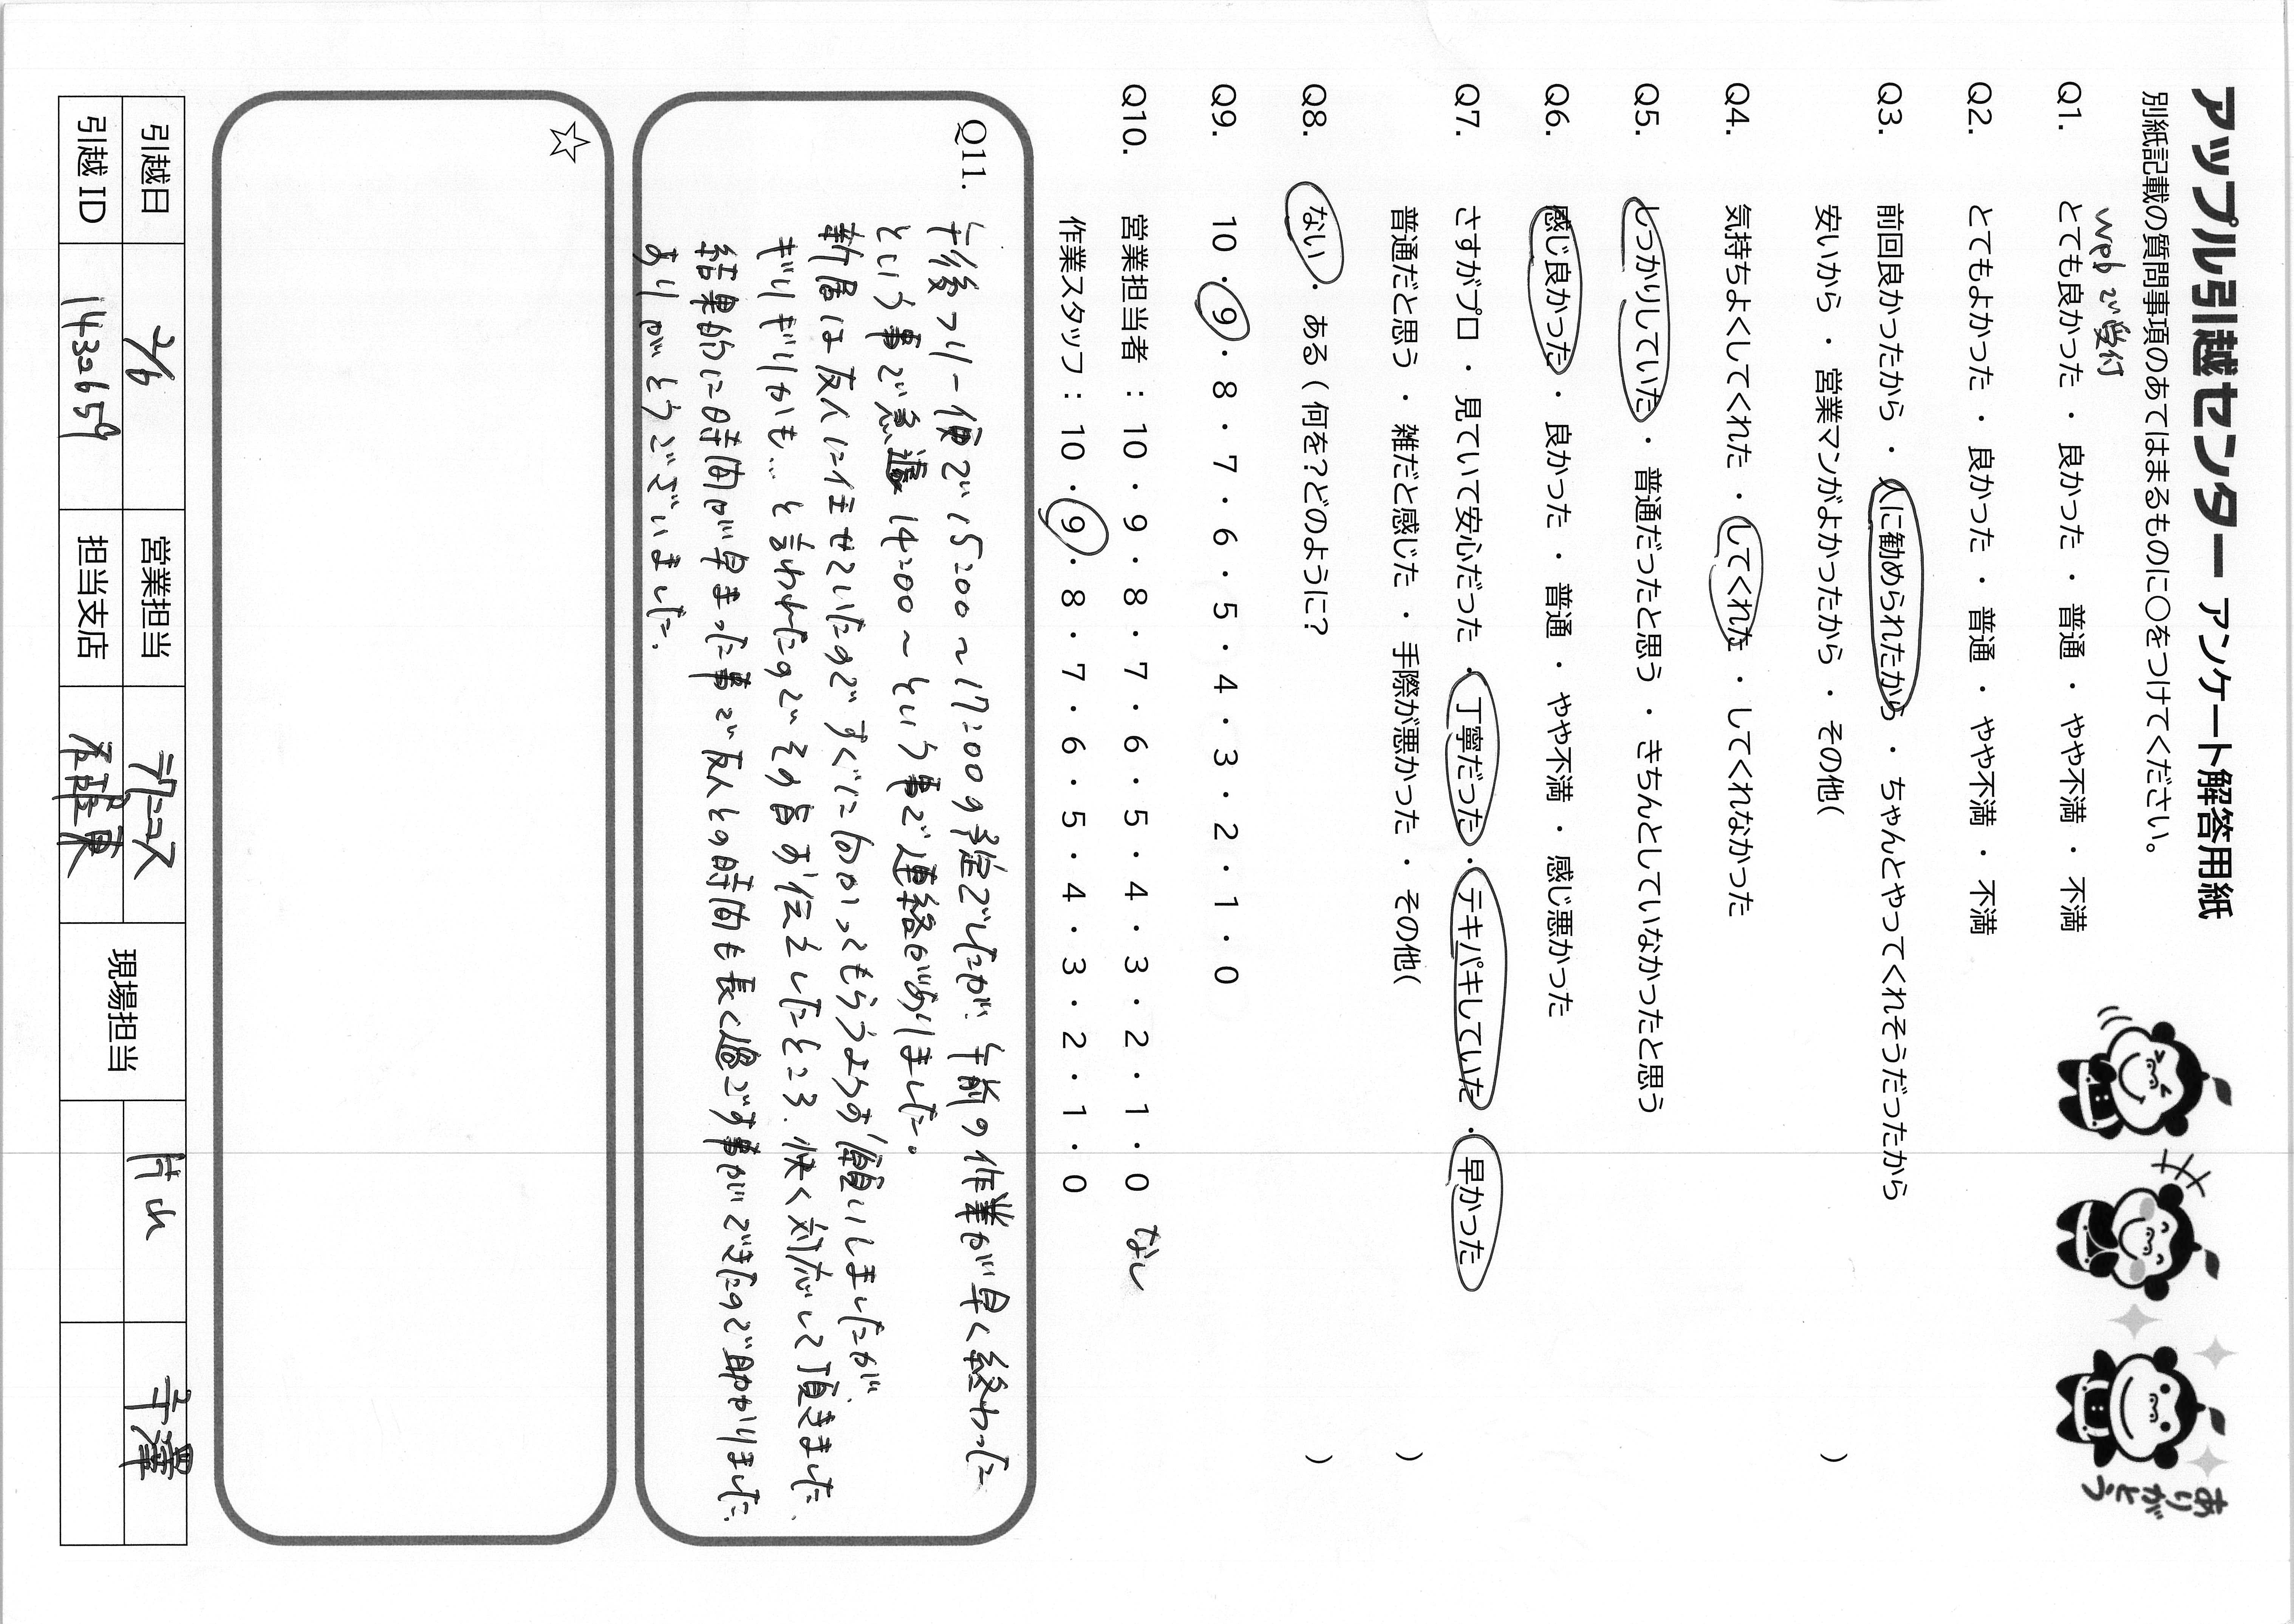 アップル引越センター アンケート解答用紙
別紙記載の質問事項のあてはまるものに〇をつけてください。
Webで受付
Q1. とても良かった ・ 良かった ・ 普通 ・ やや不満 ・ 不満
Q2. とてもよかった ・ 良かった ・ 普通 ・ やや不満 ・ 不満
Q3. 前回良かったから ・ 人に勧められたから ・ ちゃんとやってくれそうだったから
安いから ・ 営業マンがよかったから ・ その他( )
Q4. 気持ちよくしてくれた ・ してくれた ・ してくれなかった
Q5. しっかりしていた ・ 普通だったと思う ・ きちんとしていなかったと思う
Q6. 感じ良かった ・ 良かった ・ 普通 ・ やや不満 ・ 感じ悪かった
Q7. さすがプロ ・ 見ていて安心だった ・ 丁寧だった ・ テキパキしていた ・ 早かった
普通だと思う ・ 雑だと感じた ・ 手際が悪かった ・ その他( )
Q8. ない ・ ある ( 何を?どのように? )
Q9. 10 ・ 9 ・ 8 ・ 7 ・ 6 ・ 5 ・ 4 ・ 3 ・ 2 ・ 1 ・ 0
Q10. 営業担当者 : 10 ・ 9 ・ 8 ・ 7 ・ 6 ・ 5 ・ 4 ・ 3 ・ 2 ・ 1 ・ 0 なし
作業スタッフ : 10 ・ 9 ・ 8 ・ 7 ・ 6 ・ 5 ・ 4 ・ 3 ・ 2 ・ 1 ・ 0
Q11. 午後フリー便で15:00〜17:00の予定でしたが、午前の作業が早く終わった
という事で急遽14:00〜という事で連絡がありました。
新居は友人に任せていたのですぐに向かってもらうようお願いしましたが、
ぎりぎりかも…と言われたのでその旨お伝えしたところ、快く対応して頂きました。
結果的に時間が早まった事で友人との時間も長く過ごす事ができたので助かりました。
ありがとうございました。
☆
引越日 2/6 営業担当 現場担当 片山 寺澤
引越 ID 1430659 担当支店
ありがとう